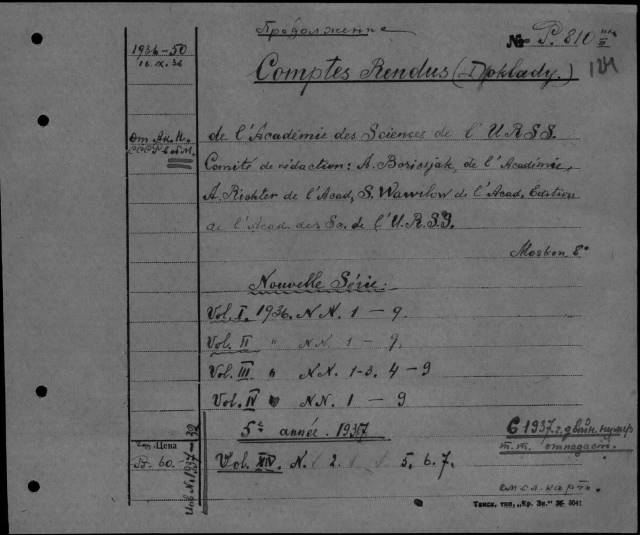 Продолжение
№ P. 810
124
1936-50
16.X.36
Comptes Rendus (Doklady.)
от Ак. Н.
СССР в об М.
de l'Académie des Sciences de l'URSS.
Comité de rédaction: A. Borissjak, de l'Académie,
A. Richter de l'Acad, S. Wawilow de l'Acad. Edition
de l'Acad. des Sc. de l'U.R.S.S.
Moskou 8°
Nouvelle Série:
Vol. I. 1936. N.N. 1 – 9.
Vol. II " N.N. 1 – 9.
Vol. III " N.N. 1-3. 4 – 9
Vol. IV " N.N. 1 – 9
5e année. 1937
С 1937 г. двойн. нумер
т.т. отпадает.
Цена
60.-
Vol. XIV. N. 1 2. 5. 6. 7.
см. сл. карто.
Инв. N. 1937-32
Танск. тип. „Кр. Зн." № 3041